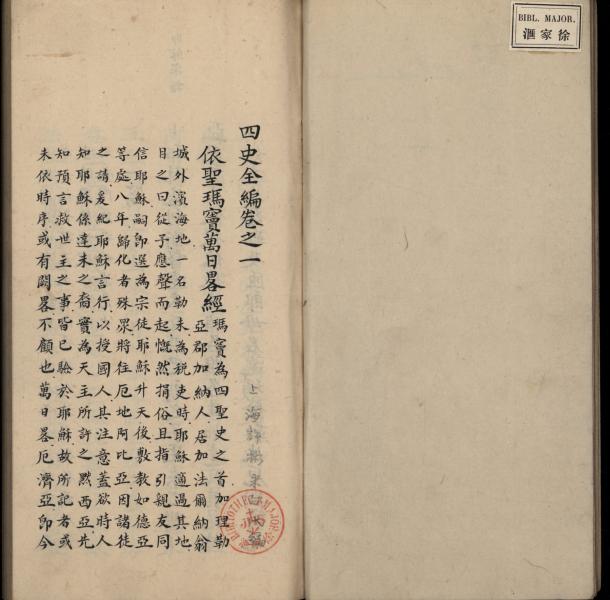 BIBL. MAJOR.
徐家滙
四史全編卷之一
上海
依聖瑪竇萬日畧經
瑪竇為四聖史之首加理勒
亞郡加納人居加法爾納翁
城外濱海地一名勒未為稅吏時耶穌適過其地
目之曰從予應聲而起慨然捐俗且指引親友同
信耶穌嗣卽選為宗徒耶穌升天後敷教如德亞
等處八年歸化者殊眾將往厄地阿比亞因諸徒
之請爰紀耶穌言行以授國人其注意蓋欲時人
知耶穌係達未之裔實為天主所許之黙西亞先
知預言救世主之事皆已驗於耶穌故所記者或
未依時序或有闕畧不顧也萬日畧厄濟亞卽今